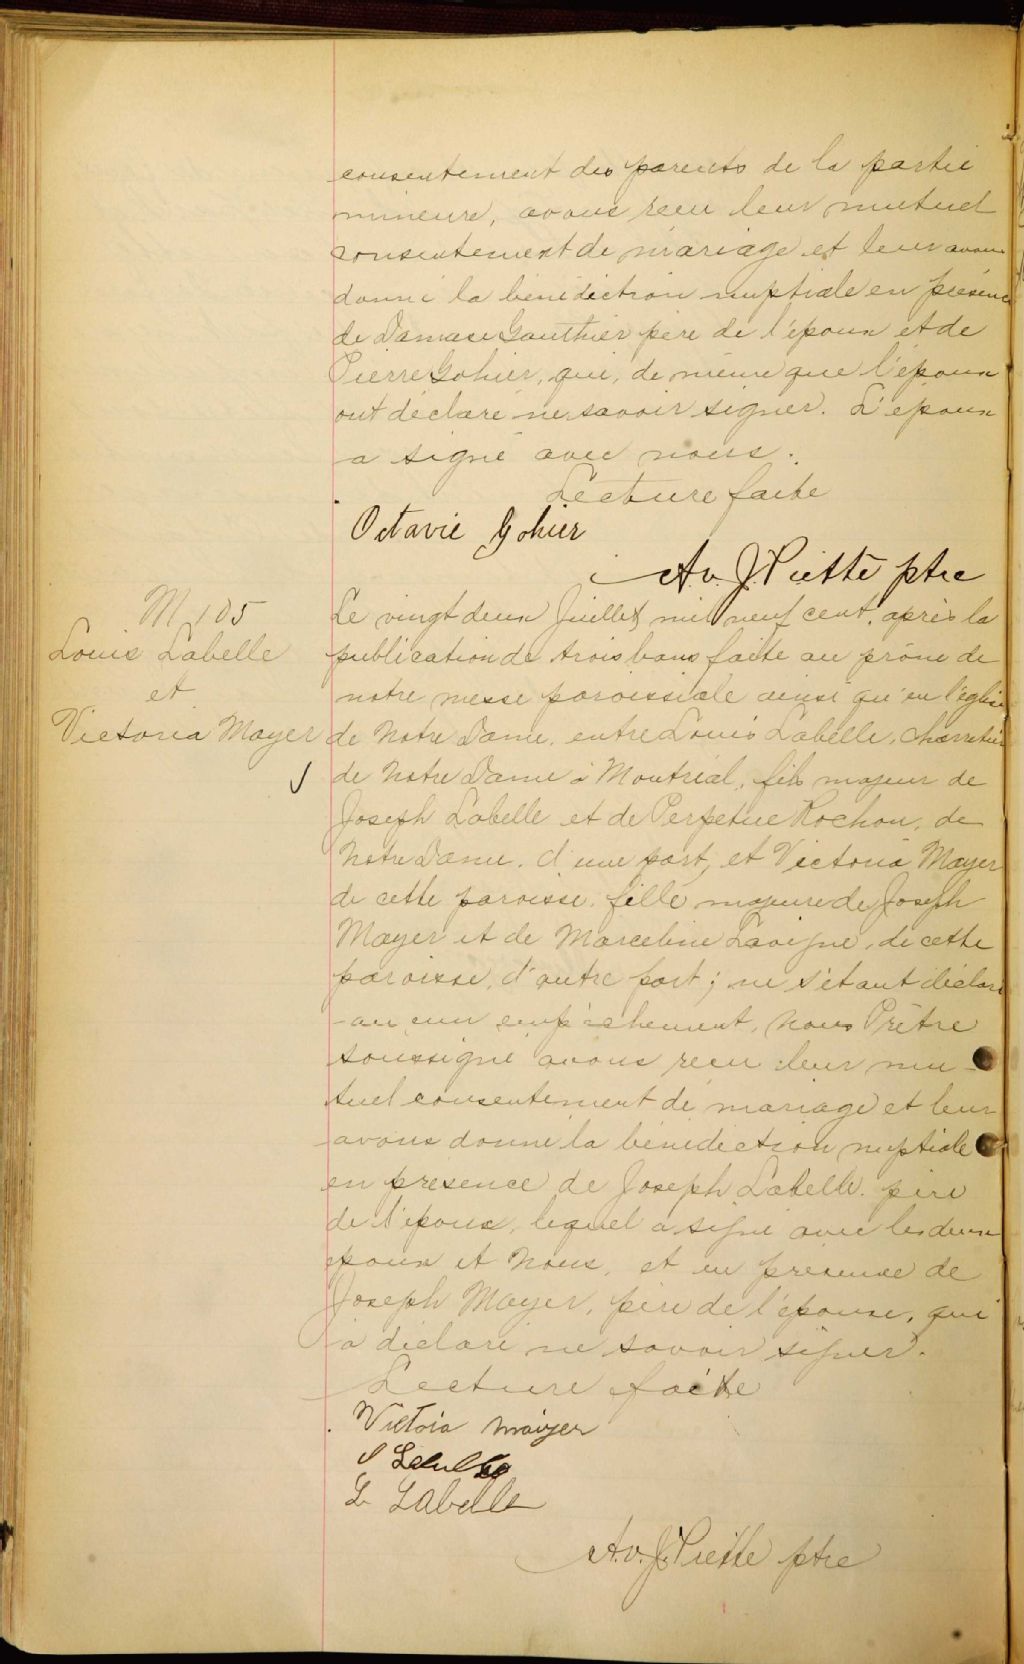 consentement des parents de la partie
mineure, avons recu leur mutuel
consentement de mariage et leur avons
donné la bénédiction nuptiale en présence
de Damase Gauthier père de l'époux et de
Pierre Gohier, qui, de même que l'époux
ont déclaré ne savoir signer. L'épouse
a signé avec nous.
Lecture faite
Octavie Gohier
Av. J. Piette ptre
M 105
Louis Labelle
et
Victoria Mayer
Le vingt deux Juillet mil neuf cent, après la
publication de trois bans faite au prône de
notre messe paroissiale ainsi qu'en l'église
de Notre Dame, entre Louis Labelle, charretier
de Notre Dame à Montréal, fils majeur de
Joseph Labelle et de Perpetue Rochon, de
Notre Dame, d'une part, et Victoria Mayer
de cette paroisse, fille majeure de Joseph
Mayer et de Marceline Lavigne, de cette
paroisse, d'autre part; ne s'étant déclaré
aucun empêchement, Nous Prêtre
soussigné avons recu leur mu-
tuel consentement de mariage et leur
avons donné la bénédiction nuptiale
en présence de Joseph Labelle, père
de l'époux, lequel a signé avec les deux
époux et Nous, et en présence de
Joseph Mayer, père de l'épouse, qui
a déclaré ne savoir signer.
Lecture faite
Victoia mayer
L Labelle
Av. J. Piette ptre